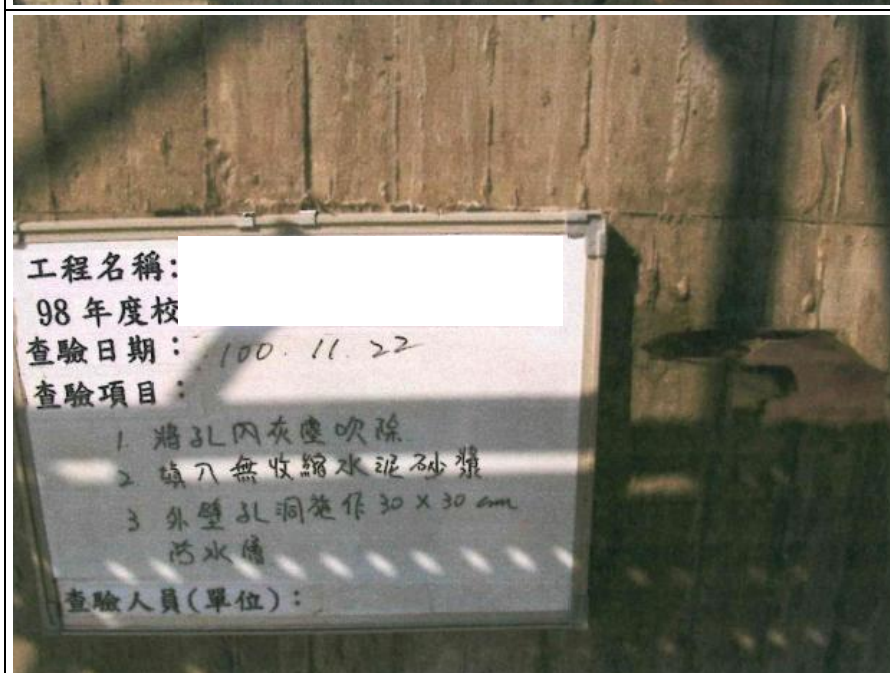 工程名稱:
98 年度校
查驗日期: 100. 11. 22
查驗項目:
1. 將孔內灰塵吹除
2 填入無收縮水泥砂漿
3 外壁孔洞施作 30 × 30 cm
防水層
查驗人員(單位):